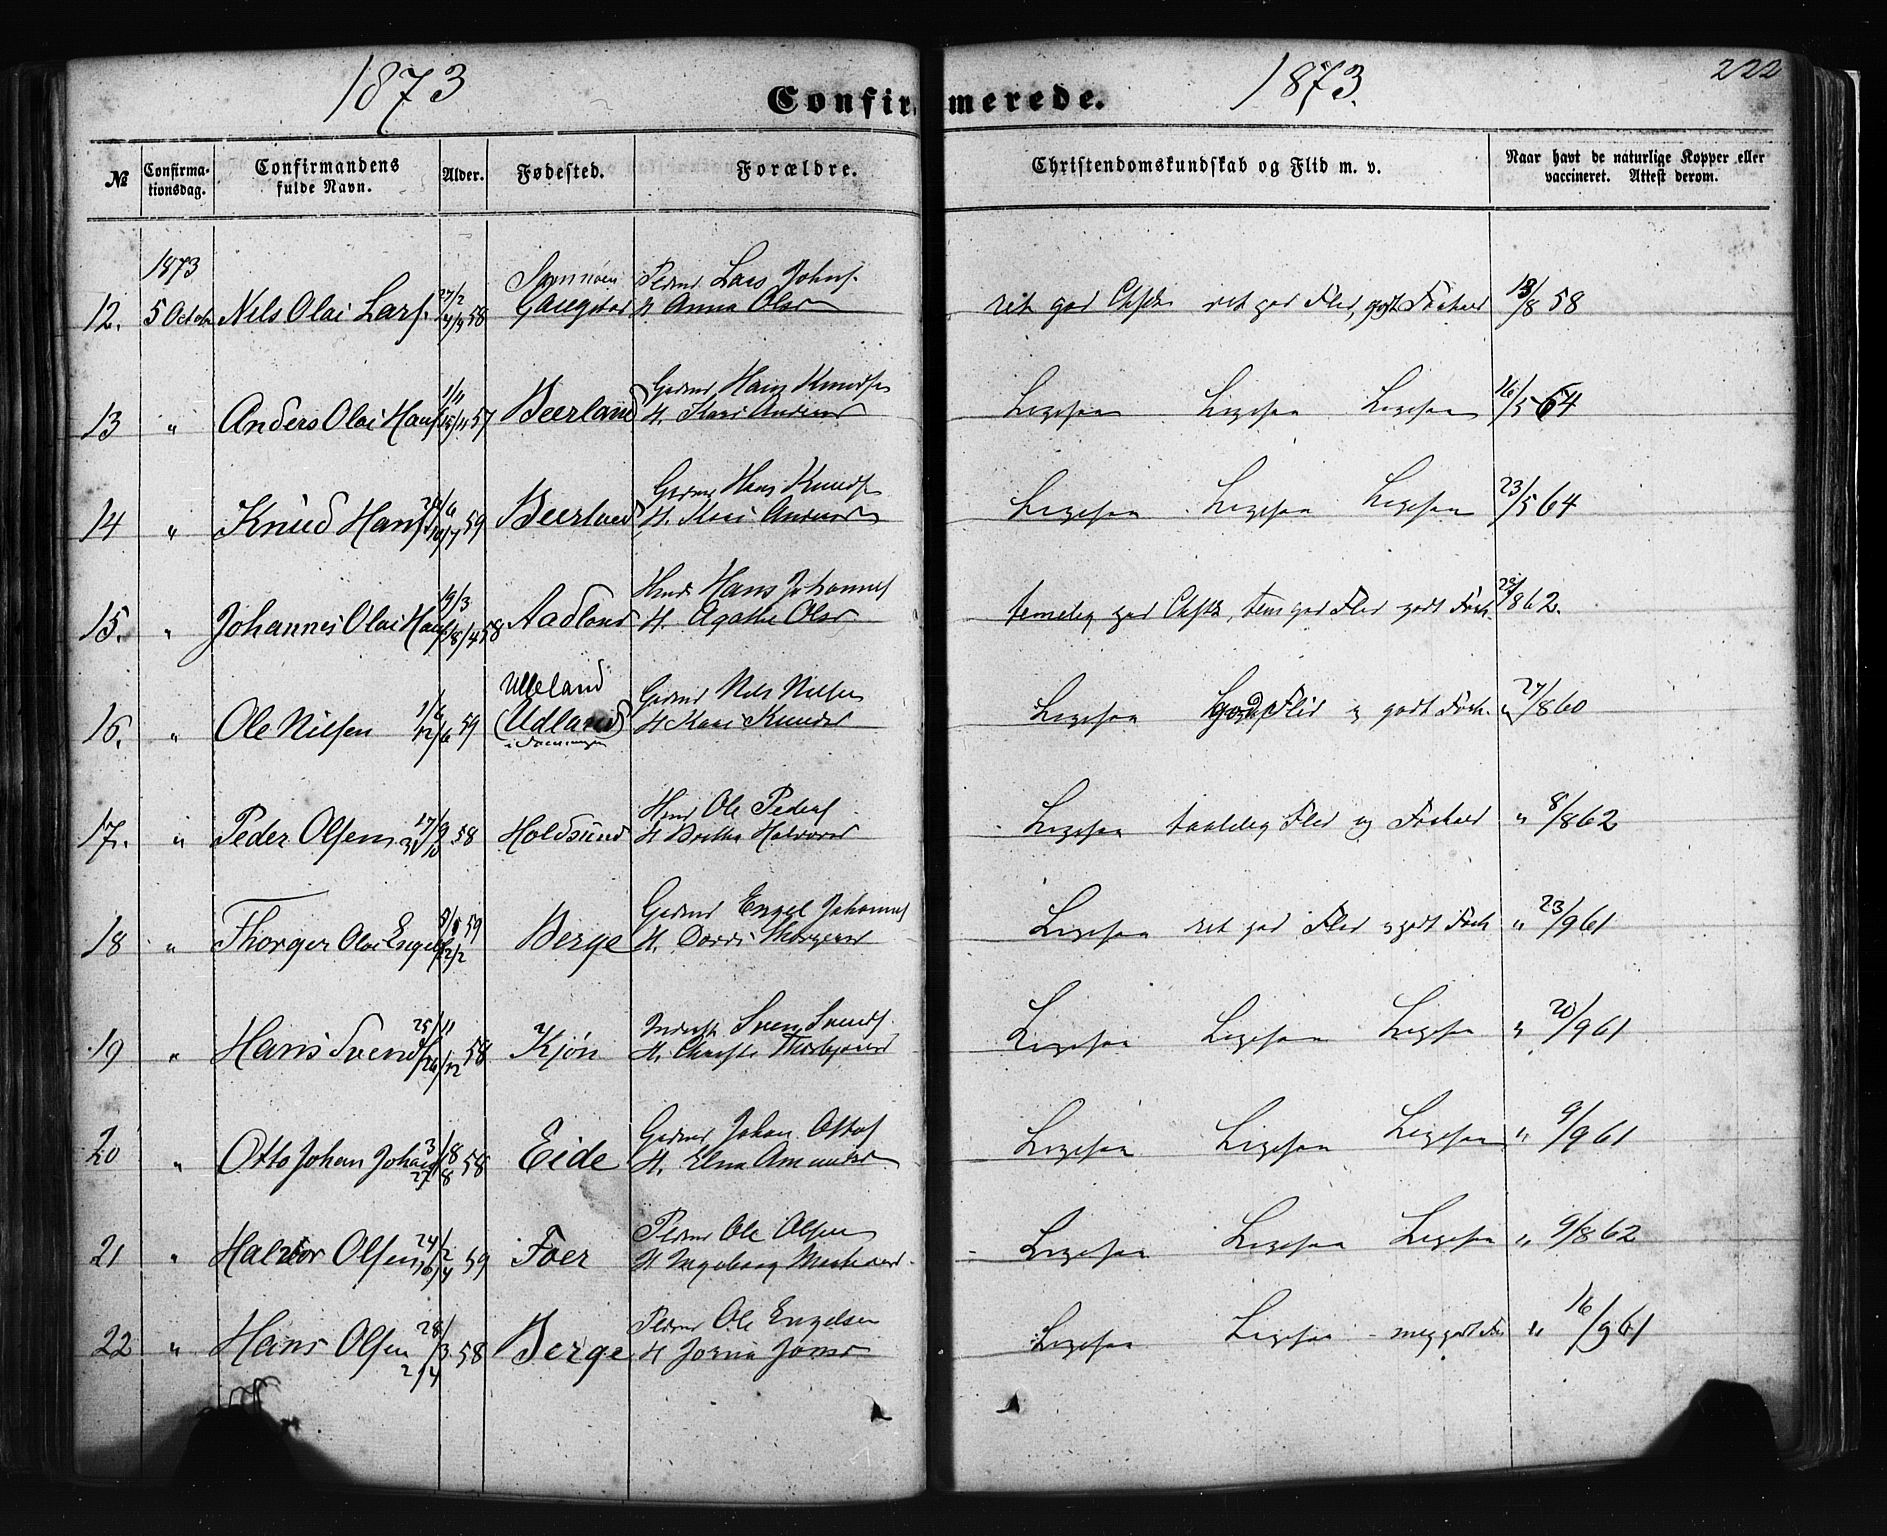 1873
Confirmerede.
1873.
222
№
Confirma-
tionsdag.
Confirmandens
fulde Navn.
Alder.
Fødested.
Forældre.
Christendomskundskab og Flid m. v.
Naar havt de naturlige Kopper eller
vaccineret. Attest derom.
1873
12. 5 Octob Nils Olai Larss. 27/2 4/4 58 Gaugstad Lars Johns. H. Anna Olsd ret god Chrstk ret god Flid, godt Forhold 13/8 58
13 " Anders Olai Hanss 1/11 15/11 57 Beerland Gaardm Hans Knuds H. Kari Andersd Ligesaa Ligesaa Ligesaa 16/5 64
14 " Knud Hanss 24/6 10/7 59 Beerland Gaardm Hans Knuds H. Kari Andersd Ligesaa Ligesaa Ligesaa 23/5 64
15. " Johannes Olai Hanss 19/3 8/4 58 Aadland Hmd Hans Johanness H. Agathe Olsd temelig god Chrstk, tem god Flid godt Forh. 23/8 62.
16. " Ole Nilsen 1/6 12/6 59 Ulleland (Udland) Gaardm Nils Nilsen H Kari Knudsd Ligesaa god Flid og godt Forh. " 27/8 60
17. " Peder Olsen 17/9 31/10 58 Holdsund Hmd Ole Peders H Britha Halvorsd Ligesaa taalelig Flid og Forhold " 8/8 62
18 " Thorger Olai Engels 9/1 59 2/2 Berge Gaardm Engel Johanness H. Dordi Thorgersd Ligesaa ret god Flid godt Forh " 23/9 61
19 " Hans Svends 25/11 26/12 58 Kjøn Sven Svends. H. Christi Thorbjørnsd Ligesaa Ligesaa Ligesaa " 20/9 61
20 " Otto Johan Johans 3/8 27/8 58 Eide Gaardm Johan Ottos H. Elna Amundsd Ligesaa Ligesaa Ligesaa " 9/9 61
21 " Halvor Olsen 24/2 16/4 59 Foer Ole Olsen H Ingeborg Ligesaa Ligesaa Ligesaa " 9/8 62
22 " Hans Olsen 28/3 58 2/4 Berge Ole Engelsen H Jorina Jonsd Ligesaa Ligesaa meg godt For " 16/9 61